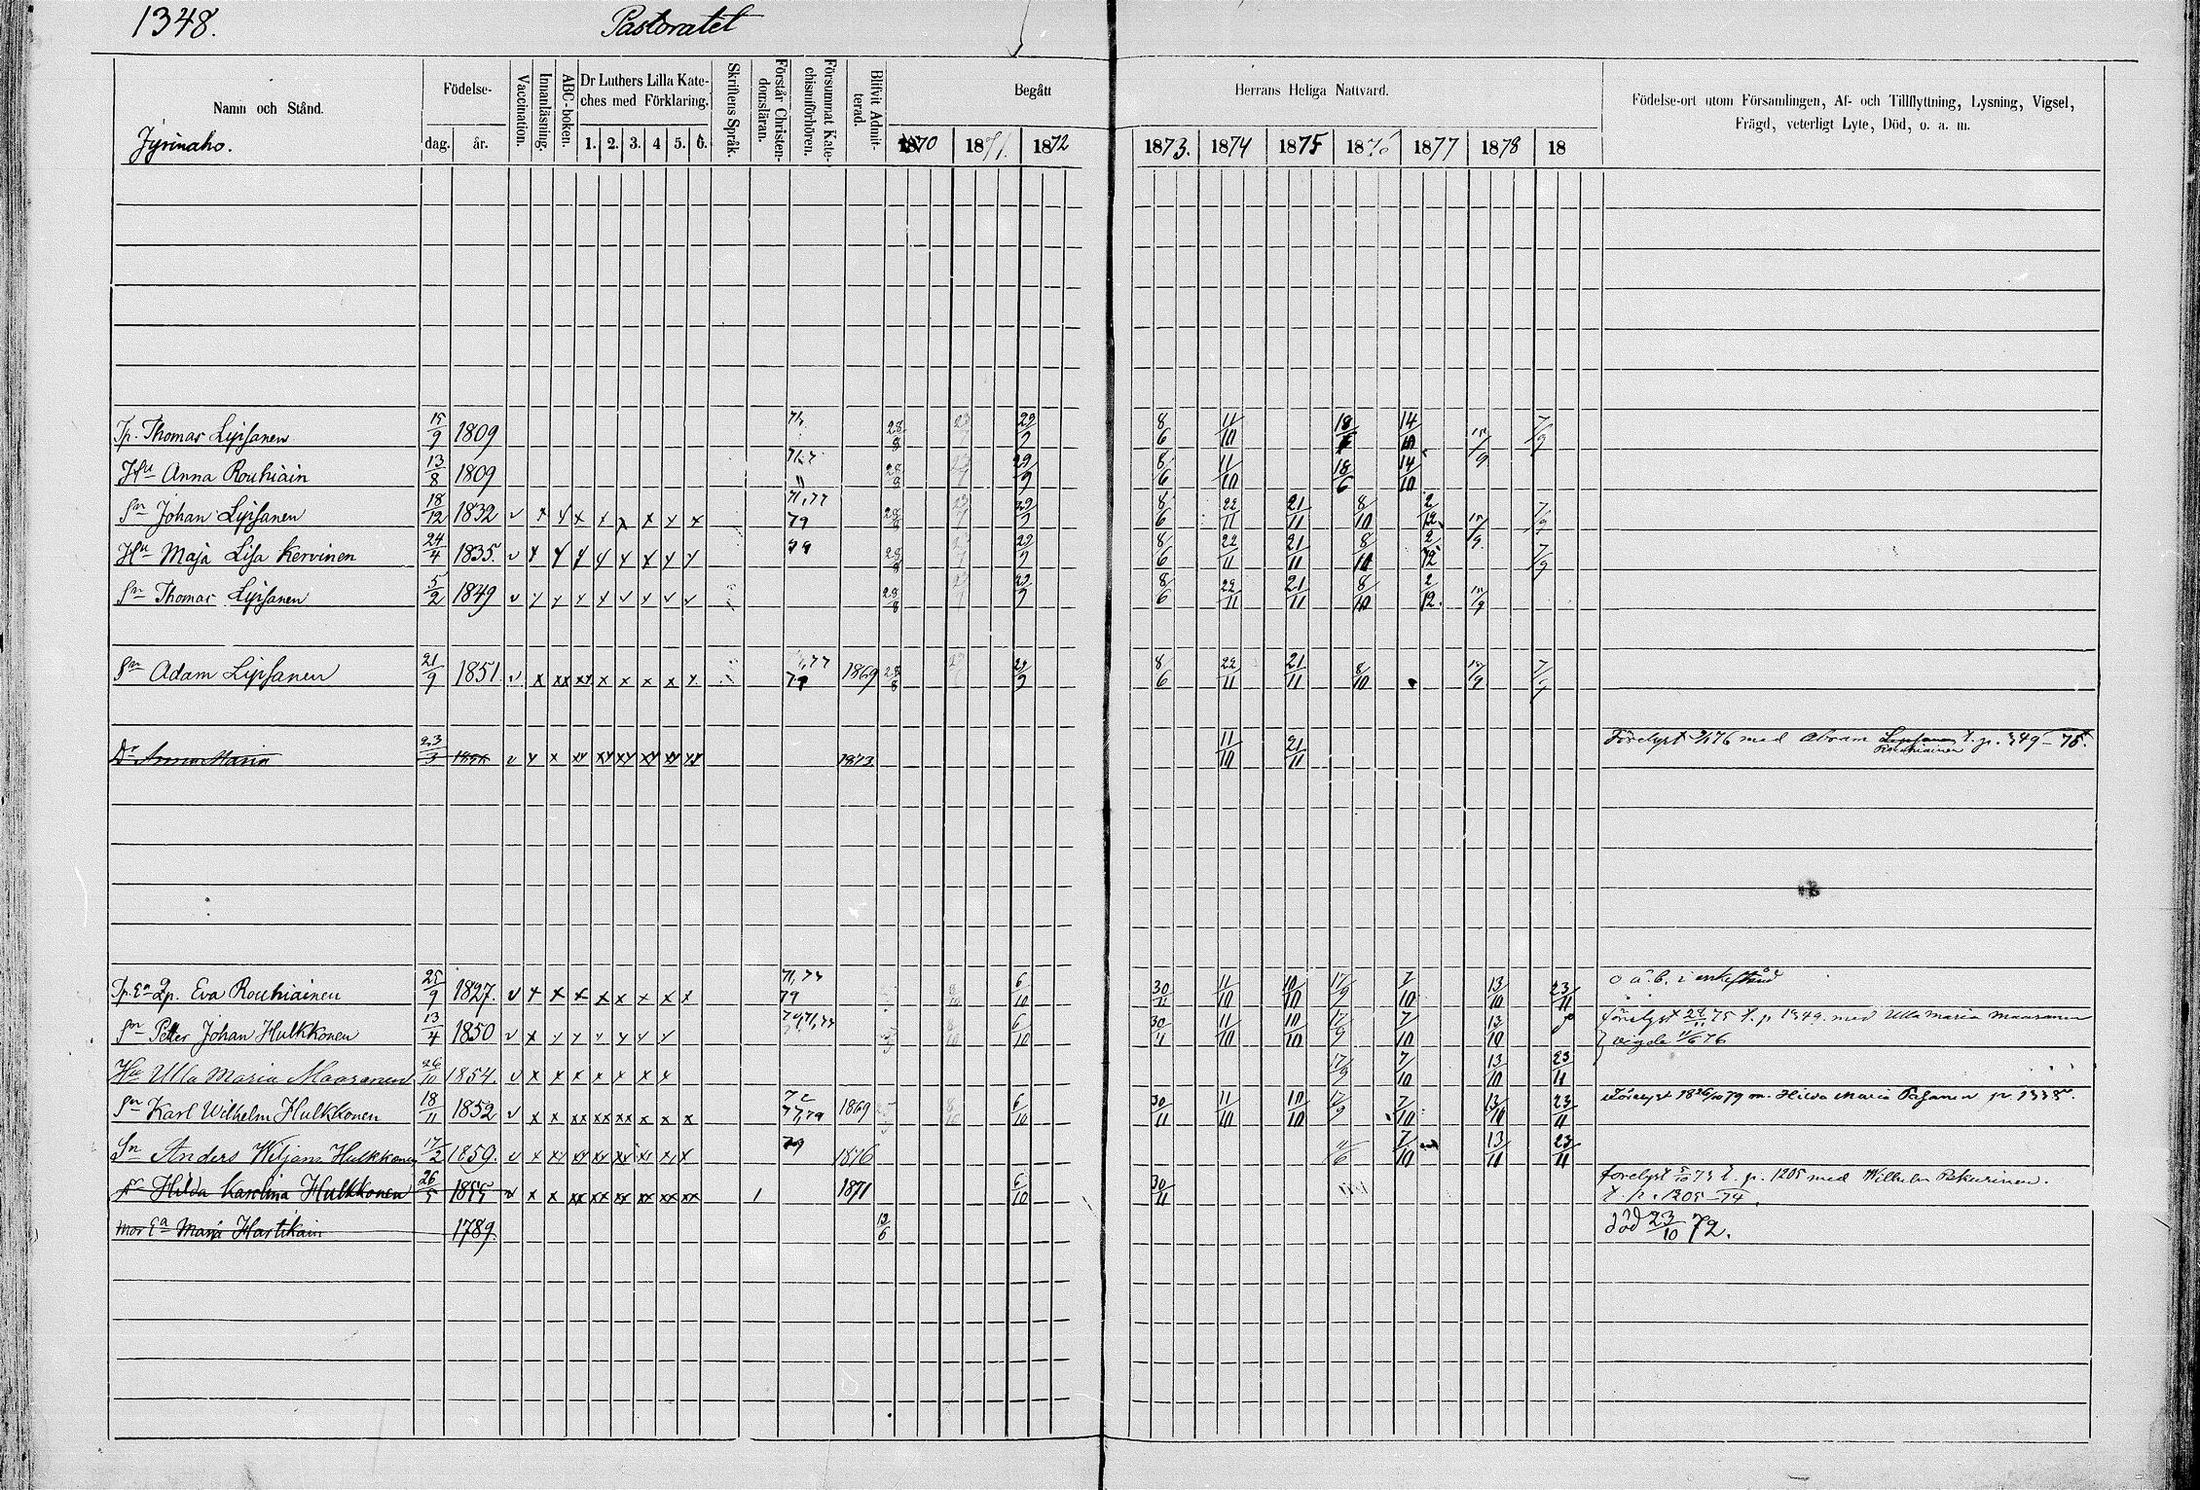 1348. Pastoratet
Namn och Stånd.
Jyrinaho.
Födelse-
dag. år.
Vaccination.
Innanläsning.
ABC-boken.
Dr Luthers Lilla Kate-
ches med Förklaring.
1. 2. 3. 4 5. 6.
Skriftens Språk.
Förstår Christen-
domsläran.
Försummat Kate-
chismiförhören.
Blifvit Admit-
terad.
Begått Herrans Heliga Nattvard.
1870 1871. 1872 1873. 1874 1875 1876 1877 1878 18
Födelse-ort utom Församlingen, Af- och Tillflyttning, Lysning, Vigsel,
Frägd, veterligt Lyte, Död, o. a. m.
Tp. Thomas Lipsanen 15/9 1809 28/8 29/9 8/6 11/10 14/10 7/9
Hu Anna Rouhiain 13/8 1809 28/8 29/9 8/6 11/10 18/6 14/10
Sn Johan Lipsanen 18/12 1832 v x y x x x x x x 71,77 79 28/8 29/9 8/6 22/11 21/11 8/10 2/12 7/9
Hu Maja Lisa Kervinen 24/4 1835. v y y y y y y y y 79 28/8 29/9 8/6 22/11 21/11 8/10 2/12 7/9
Sn Thomas Lipsanen 5/2 1849 28/8 29/9 8/6 22/11 21/11 8/10 2/12.
Sn Adam Lipsanen 21/9 1851 v x xx xx x x x x x 79 1869 28/8 29/9 8/6 22/11 21/11 8/10
Dr Anna Maria 23/3 1873 11/10 21/11 Förelyst med Abram Rouhiainen
Tp. En Lp. Eva Rouhiainen 25/9 1827. v x x x x x x x x 71,77 79 6/10 30/11 11/10 10/10 17/9 7/10 13/10 23/11 o ä. b. i enkestånd
Sn Petter Johan Hulkkonen 13/4 1850 6/10 11/10 10/10 17/9 7/10 13/10 förelyst 75 t. p 1349. med Ulla Maria Maaranen
vigde 76
Hu Ulla Maria Maaranen 26/10 1854. v x x x x x x x 17/9 7/10 13/10 23/11
Sn Karl Wilhelm Hulkkonen 18/11 1852 v x x xx xx xx x x x 72 77,79 1869 6/10 30/11 11/10 10/10 17/9 7/10 13/10 23/11 Förelyst 79 m. Hilda Maria Pasanen p. 1338.
Sn Anders Wiljam Hulkkonen 17/2 1859. 79 1876 11/6 7/10 13/11 23/11
Dr Hilda Karolina Hulkkonen 26/5 1855 v x x xx xx xx xx xx xx 1 1871 6/10 30/11 förelyst 5/10 73 t. p. 1205 med Wilhelm Pekurinen.
t. p. 1205 - 74.
mor Ea Maria Hartikain 1789 död 23/10 72.